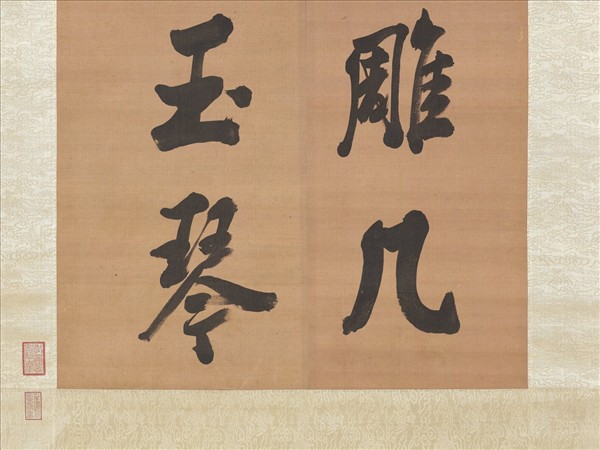 雕几
玉琴